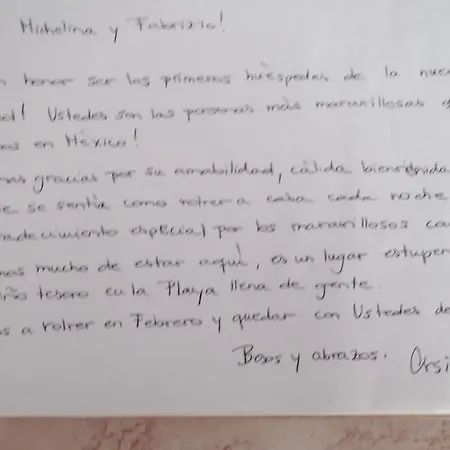 Michelina y Fabrizio!
honor ser los primeros huéspedes de la nue
! Ustedes son las personas más maravillosas
en México!
gracias por su amabilidad, cálida bienvenida
se sentía como volver a casa cada noche
especial por los maravillosos
mucho de estar aquí, es un lugar estupen
tesoro en la Playa llena de gente.
a volver en Febrero y quedar con Ustedes de
Besos y abrazos. Orsi